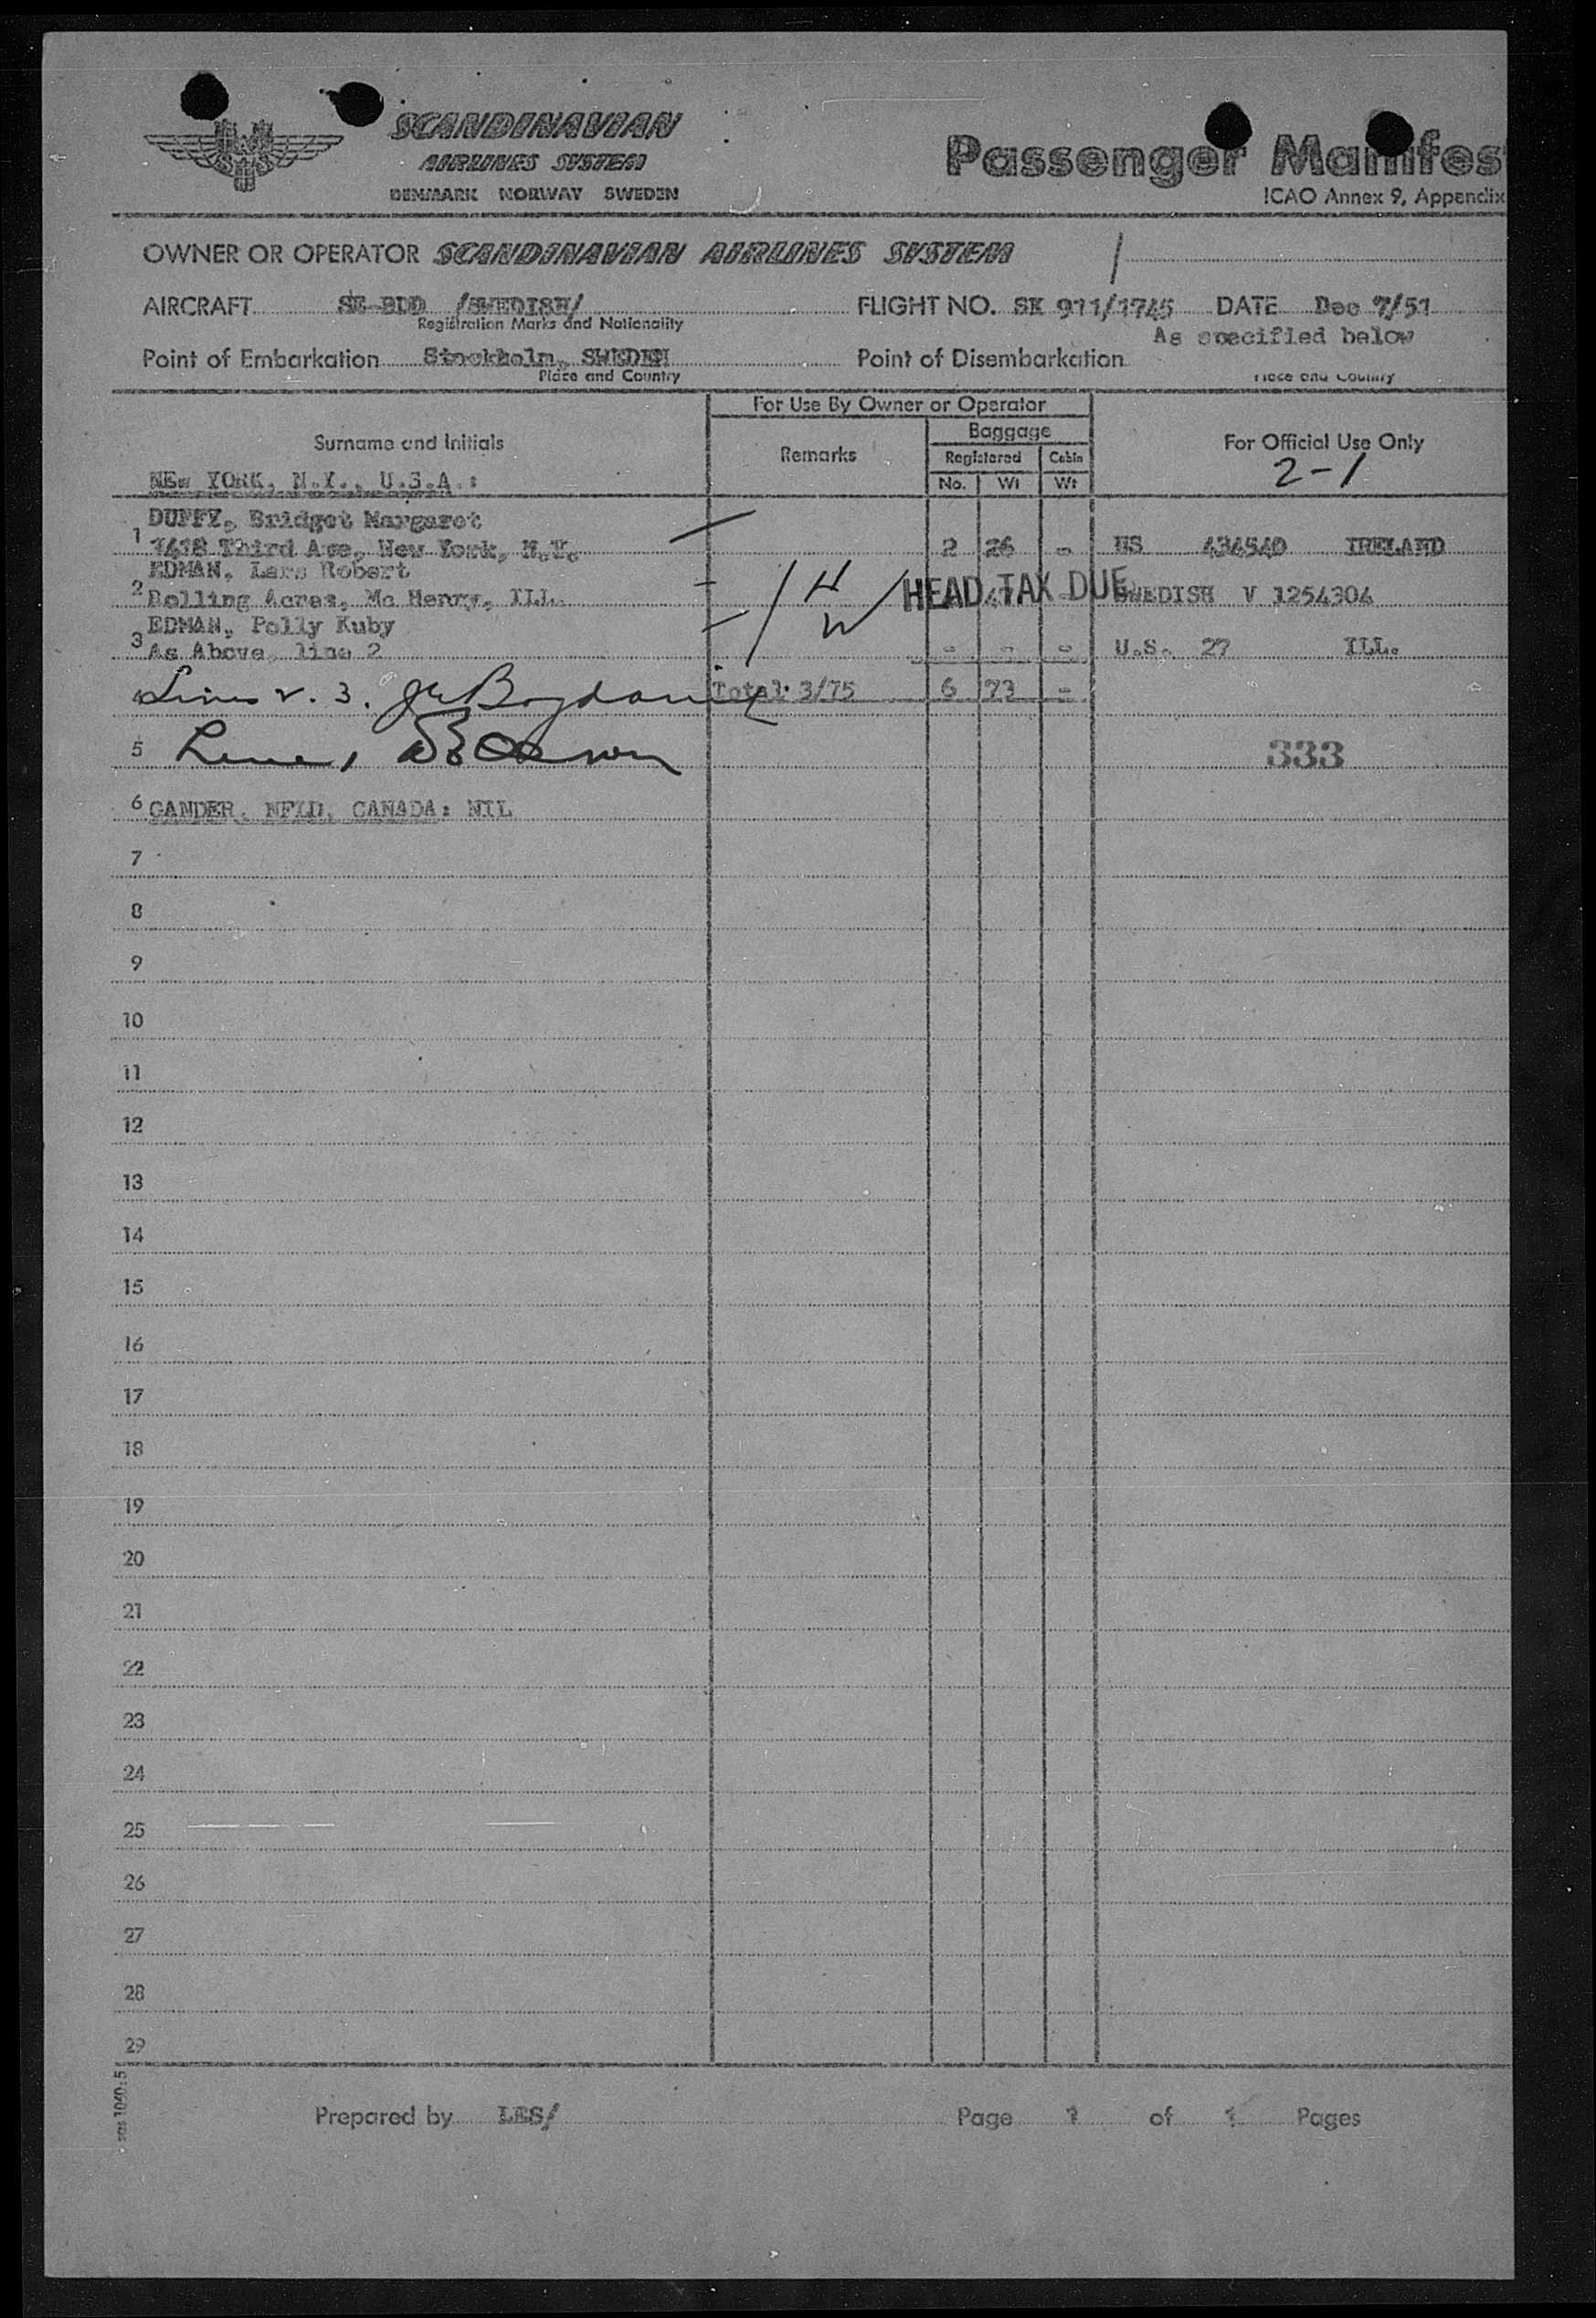 SCANDINAVIAN
AIRLINES SYSTEM
DENMARK NORWAY SWEDEN
SAS
Passenger Manifes
ICAO Annex 9, Appendix
OWNER OR OPERATOR SCANDINAVIAN AIRLINES SYSTEM
AIRCRAFT SE-BDD /SWEDISH/ FLIGHT NO. SK 911/1745 DATE Dec 7/51
Registration Marks and Nationality
As specified below
Point of Embarkation Stockholm, SWEDEN Point of Disembarkation
Place and Country Place and Country
For Use By Owner or Operator
Surname and Initials Remarks Baggage For Official Use Only
Registered Cabin
2-1
NEw YORK, N.Y., U.S.A.: No. Wt Wt
DUFFY, Bridget Margaret
1 1418 Third Ave, New York, N.Y. 2 26 - US 434540 IRELAND
EDMAN, Lars Robert
2 Bolling Acres, Mc Henry, ILL. H HEAD TAX DUE SWEDISH V 1254304
EDMAN, Polly Kuby W
3 As Above, line 2 - - - U.S. 27 ILL.
Lines 2. 3. Total: 3/75 6 73 -
5 333
6 GANDER, NFLD, CANADA: NIL
7
8
9
10
11
12
13
14
15
16
17
18
19
20
21
22
23
24
25
26
27
28
29
sas 1040:5
Prepared by LES/ Page 1 of 1 Pages